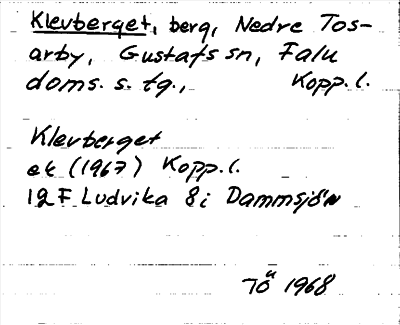 Klevberget, berg, Nedre Tos-
arby, Gustafs sn, Falu
doms. s. tg., Kopp. l.
Klevberget
ek (1967) Kopp. l.
12 F Ludvika 8i Dammsjön
TÖu 1968